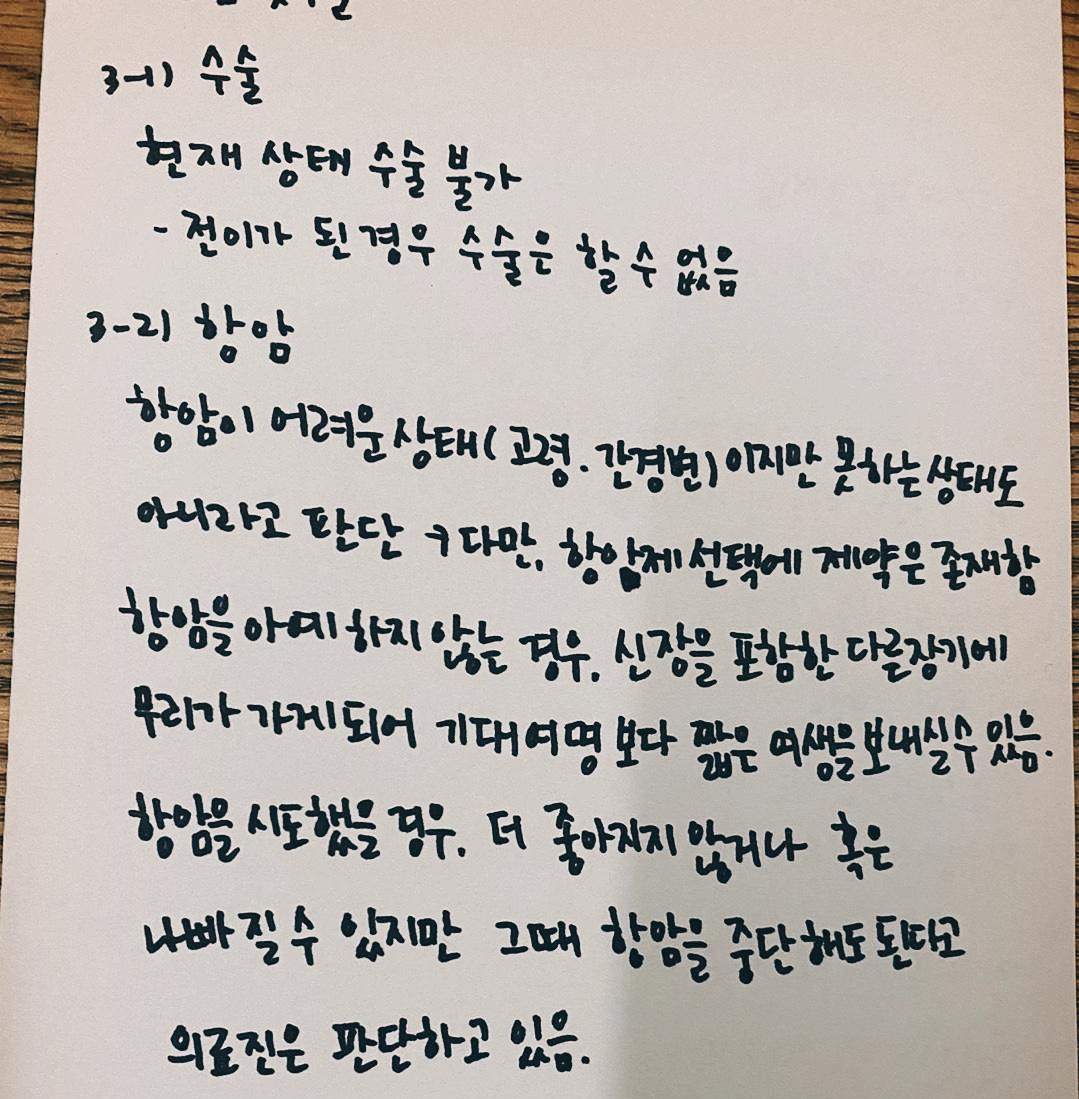 3-1) 수술
현재 상태 수술 불가
- 전이가 된 경우 수술은 할 수 없음
3-2) 항암
항암이 어려운 상태(고령, 간경변)이지만 못하는 상태도
아니라고 판단 → 다만, 항암제 선택에 제약은 존재함
항암을 아예 하지 않는 경우, 신장을 포함한 다른 장기에
무리가 가게 되어 기대여명 보다 짧은 여생을 보내실 수 있음.
항암을 시도했을 경우, 더 좋아지지 않거나 혹은
나빠질 수 있지만 그때 항암을 중단해도 된다고
의료진은 판단하고 있음.